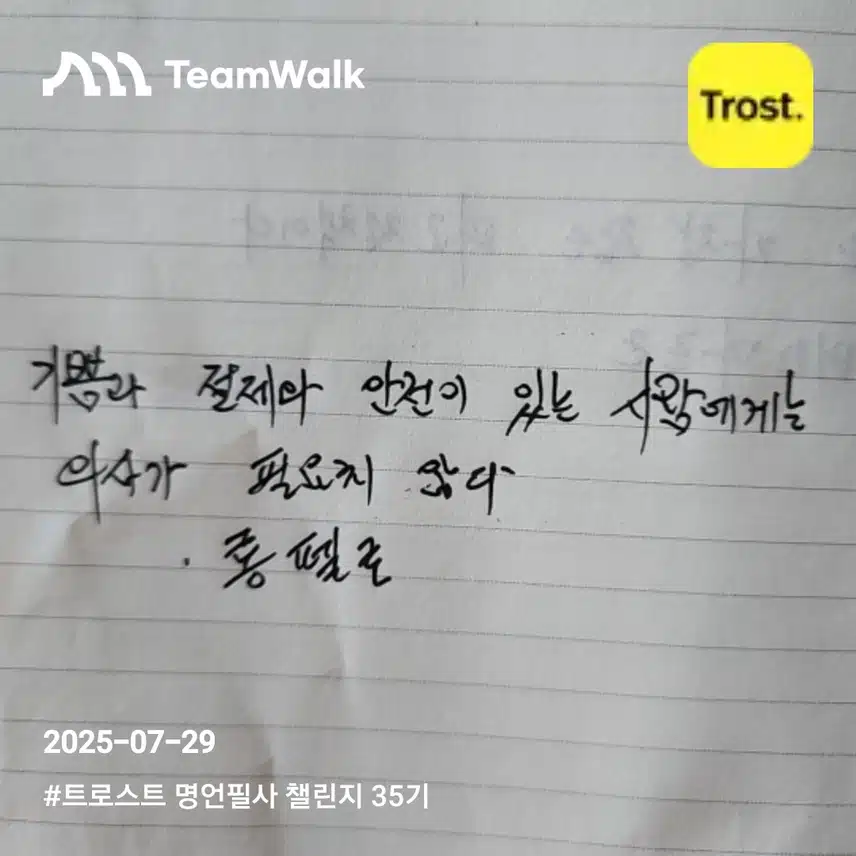 TeamWalk
Trost.
기쁨과 절제와 안전이 있는 사람에게는
의사가 필요치 않다
· 롱펠로
2025-07-29
#트로스트 명언필사 챌린지 35기